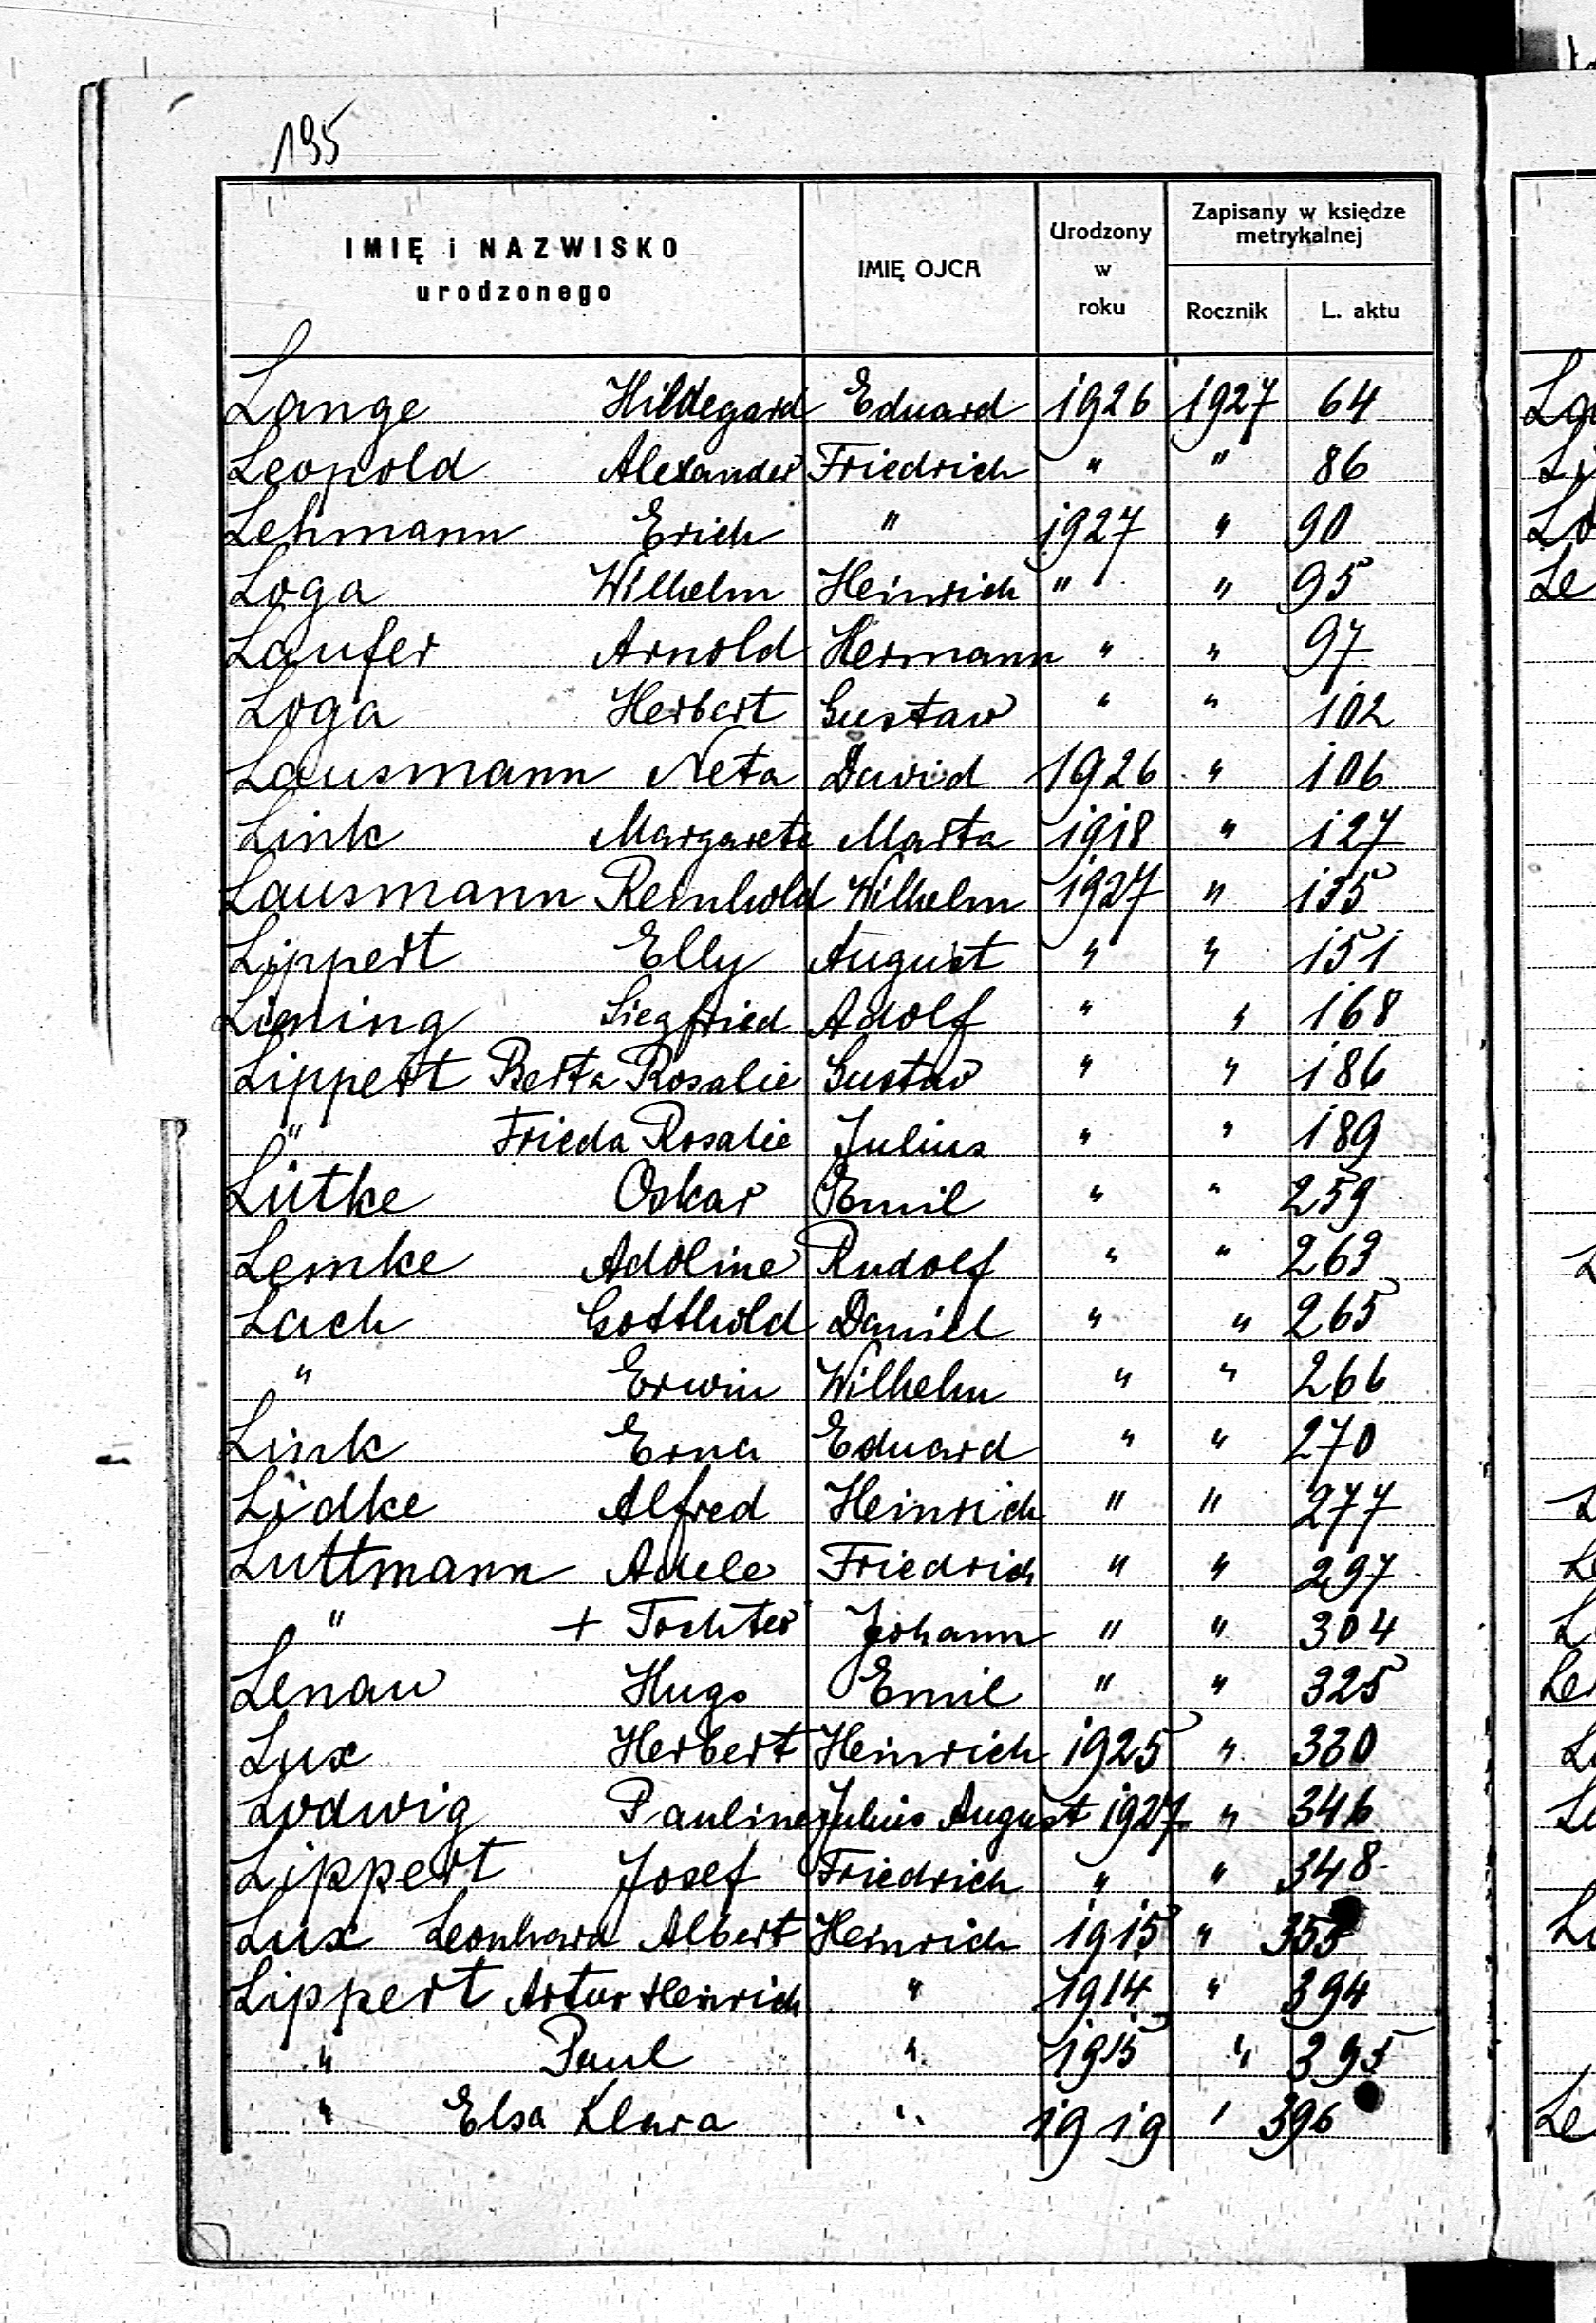 195
IMIĘ i NAZWISKO urodzonego IMIĘ OJCA Urodzony w roku Zapisany w księdze metrykalnej Rocznik L. aktu
Lange Hildegard Eduard 1926 1927 64
Leopold Alexander Friedrich " " 86
Lehmann Erich " 1927 " 90
Loga Wilhelm Heinrich " " 95
Laufer Arnold Hermann " " 97
Loga Herbert Gustaw " " 102
Lausmann Neta David 1926 " 106
Link Margarete Marta 1918 " 127
Lausmann Reinhold Wilhelm 1927 " 135
Lippert Elly August " " 151
Liening Siegfried Adolf " " 168
Lippert Berta Rosalie Gustav " " 186
" Frieda Rosalie Julius " " 189
Lütke Oskar Emil " " 259
Lemke Adoline Rudolf " " 263
Lach Gotthold Daniel " " 265
" Erwin Wilhelm " " 266
Link Erna Eduard " " 270
Lidke Alfred Heinrich " " 277
Luttmann Adele Friedrich " " 297
" + Tochter Johann " " 304
Lenaw Hugo Emil " " 325
Lux Herbert Heinrich 1925 " 330
Lodwig Pauline Julius August 1927 " 346
Lippert Josef Friedrich " " 348
Lux Leonhard Albert Heinrich 1915 " 353
Lippert Artur Heinrich " 1914 " 394
" Paul " 1915 " 395
" Elsa Klara " 1919 " 396